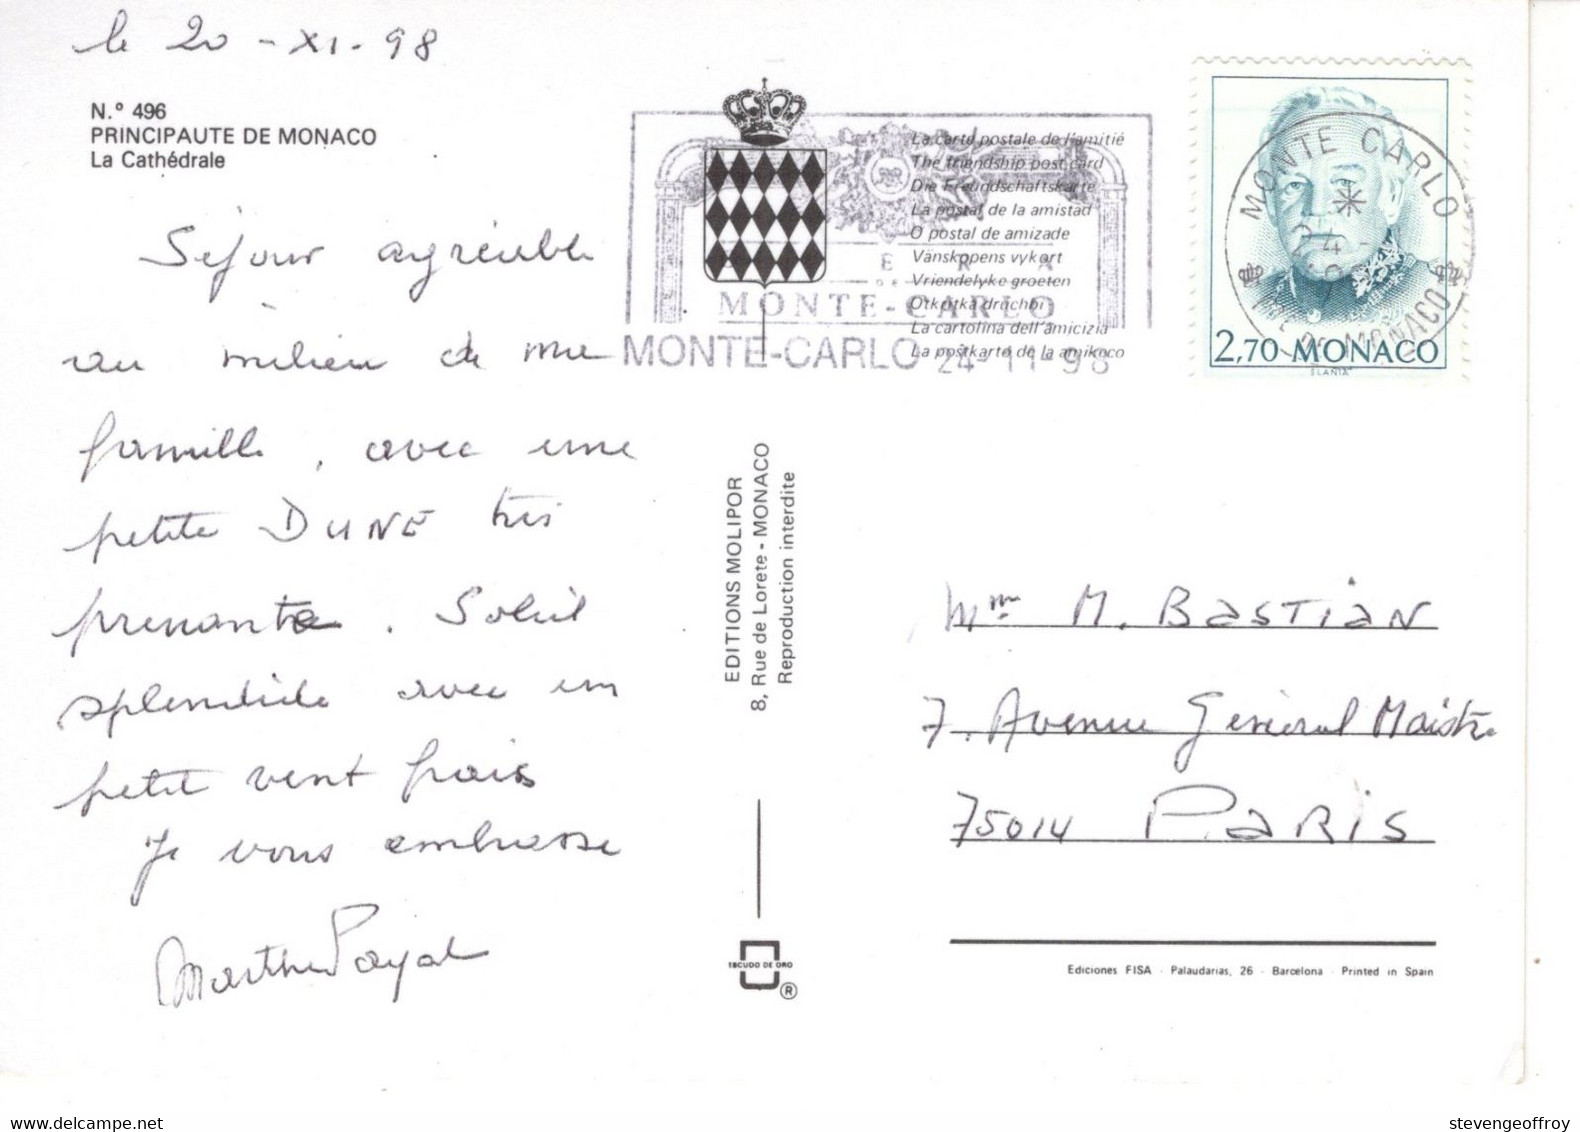 le 20 - XI - 98
N.º 496
PRINCIPAUTE DE MONACO
La Cathédrale
Séjour agréable
au milieu de ma
famille, avec une
petite DUNE très
prenante. Soleil
splendide avec un
petit vent frais
Je vous embrasse
Marthe Payal
La carte postale de l'amitié
The friendship post card
Die Freundschaftskarte
La postal de la amistad
O postal de amizade
Vänskapens vykort
Vriendelyke groeten
Otkritka druchbi
La cartolina dell'amicizia
La postkarto de la amikeco
OPERA
DE
MONTE-CARLO
MONTE-CARLO 24-11-98
MONTE CARLO
PTE DE MONACO
2,70 MONACO
SLANIA
EDITIONS MOLIPOR
8, Rue de Lorete - MONACO
Reproduction interdite
Mme M. BASTIAN
7. Avenue Général Maistre
75014 PARIS
ESCUDO DE ORO
®
Ediciones FISA - Palaudarias, 26 - Barcelona - Printed in Spain
stevengeoffroy